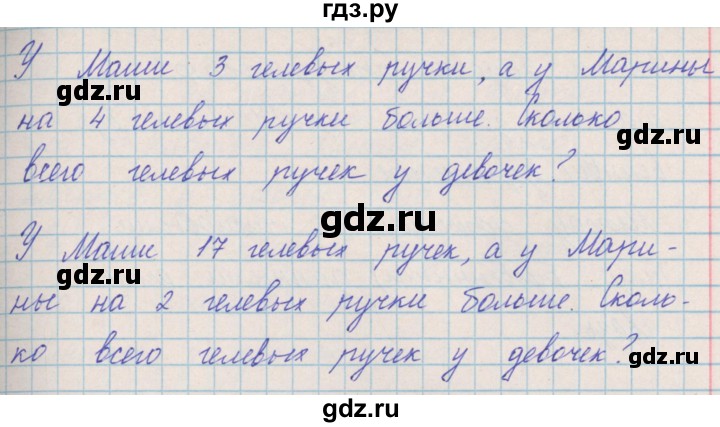 гдз.ру
У Маши 3 гелевых ручки, а у Марины
gdz.ru
на 4 гелевых ручки больше. Сколько
gdz.ru
всего гелевых ручек у девочек?
gdz.ru
У Маши 17 гелевых ручек, а у Мари-
gdz.ru
ны на 2 гелевых ручки больше. Сколь-
ко всего гелевых ручек у девочек?
gdz.ru
gdz.ru